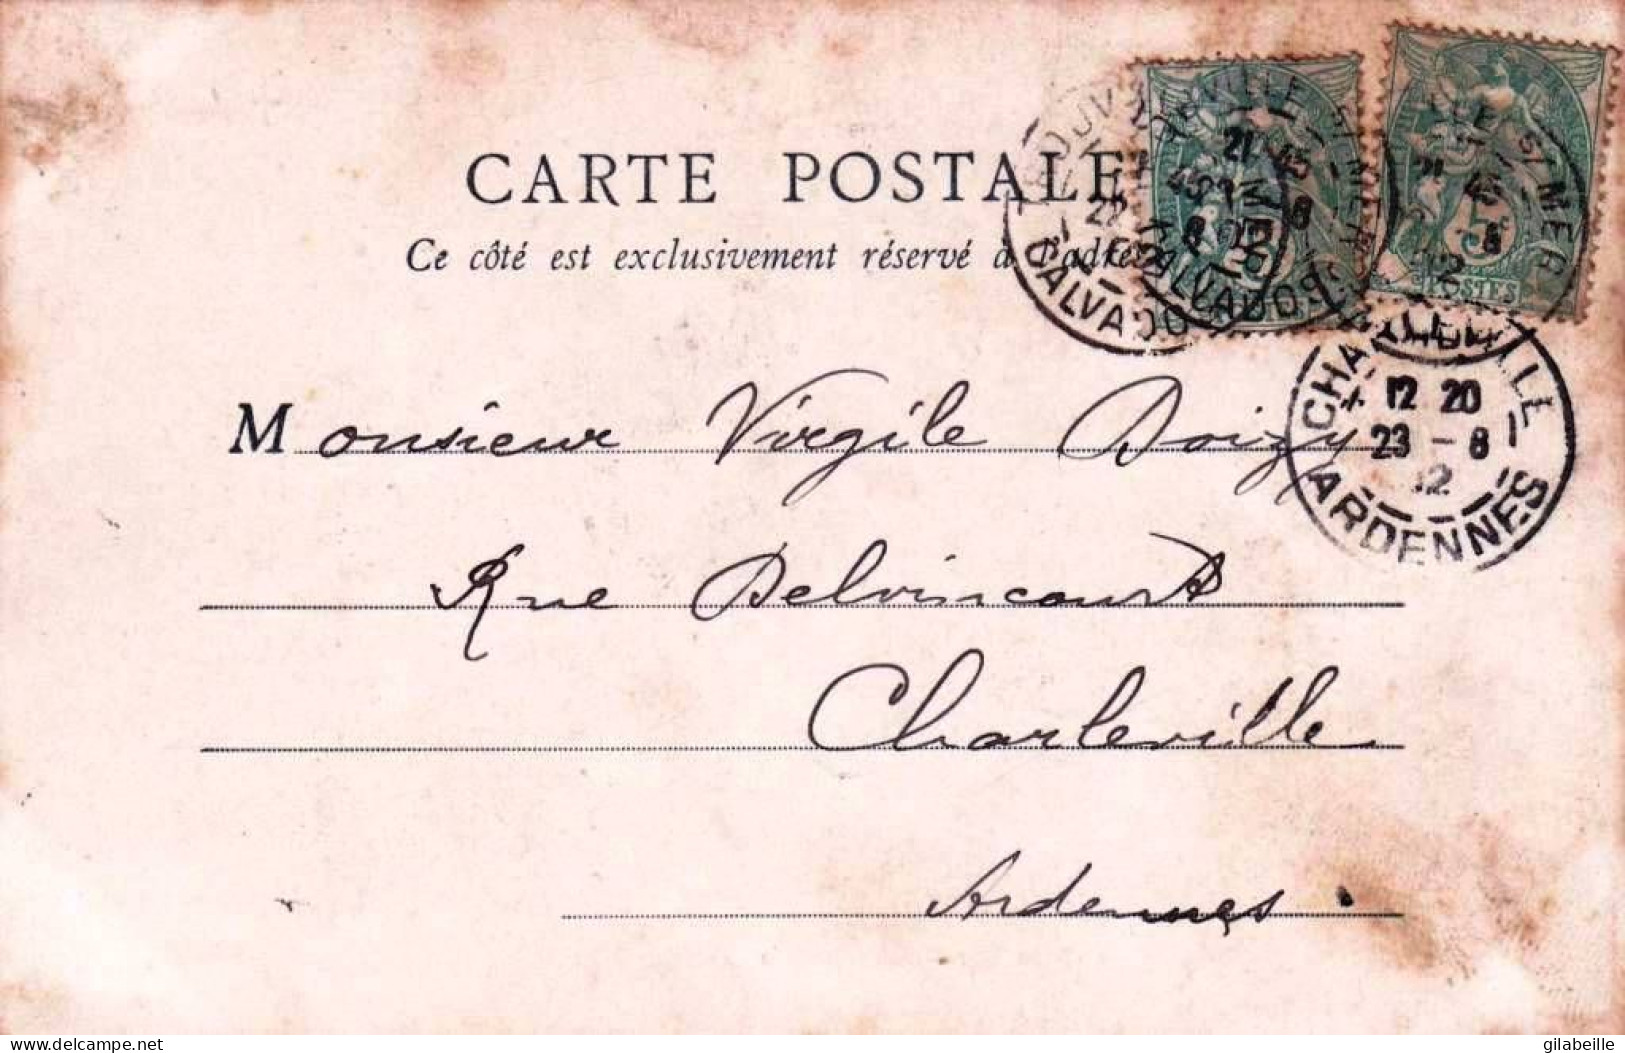 CARTE POSTALE
Ce côté est exclusivement réservé à l'adresse
Monsieur Virgile Doizy
Rue Delvincourt
Charleville
Ardennes.
TROUVILLE S/MER
21 45
22 - 8
02
CALVADOS
5c
POSTES
CHARLEVILLE
12 20
23 - 8
02
ARDENNES
delcampe.net
gilabeille